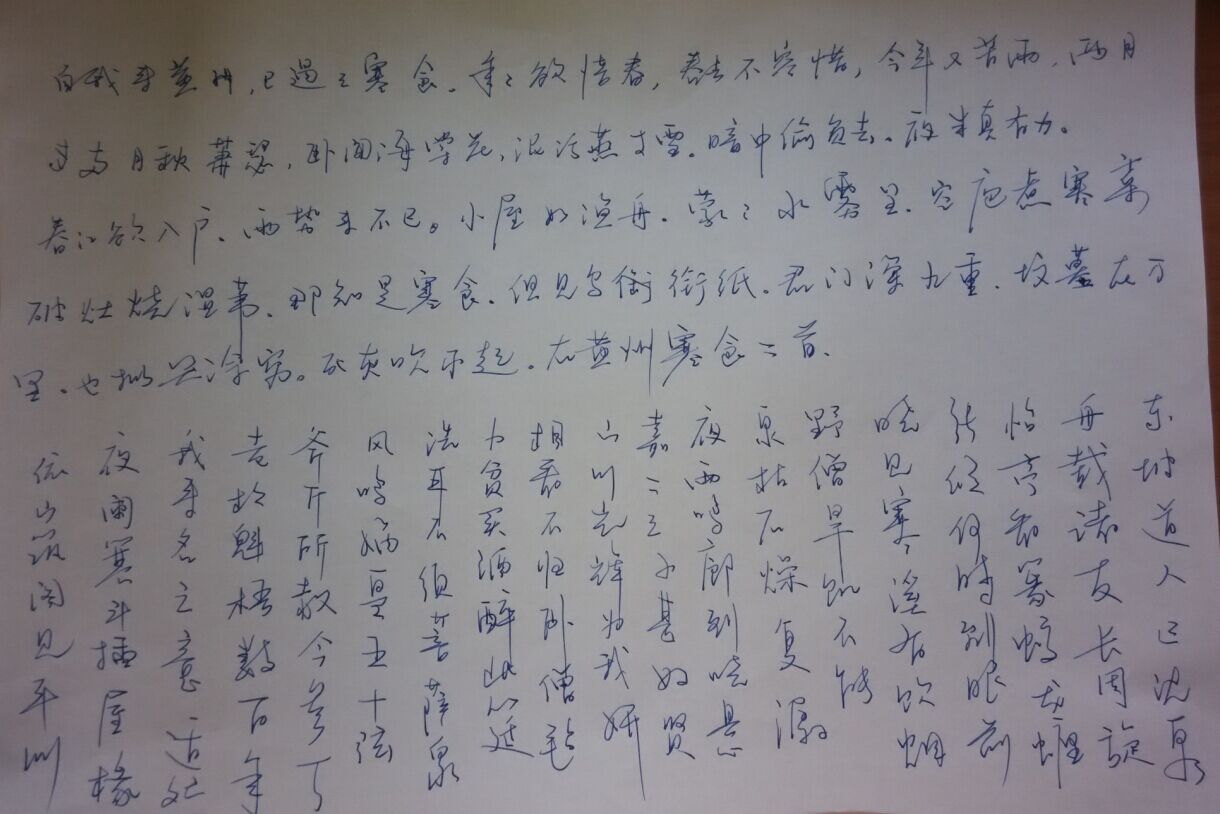 自我来黄州,已過三寒食。年〻欲惜春,春去不容惜,今年又苦雨,两月
过两月秋萧瑟,卧闻海棠花,泥污燕支雪。暗中偷负去。夜半真有力。
春江欲入户,雨势来不已。小屋如渔舟,蒙〻水雾里,空庖煮寒菜
破灶烧湿苇,那知是寒食,但见乌衔衔纸。君门深九重,坟墓在万
里,也拟哭涂穷。死灰吹不起。右黄州寒食二首。
依山筑阁见平川
夜阑寒斗插屋椽
我来名之意适
老松魁梧数百年
斧斤所赦今参
风鸣娲皇五十弦
洗耳不须菩萨泉
力贫买酒醉此筵
相看不归卧僧毡
山川光辉为我妍
嘉二三子甚好贤
夜雨鸣廊到晓悬
泉枯石燥复潺
野僧旱饥不能
晓见寒溪有炊烟
张侯何时到眼前
怡亭看篆蛟龙缠
舟载诸友长周旋
东坡道人已沈泉